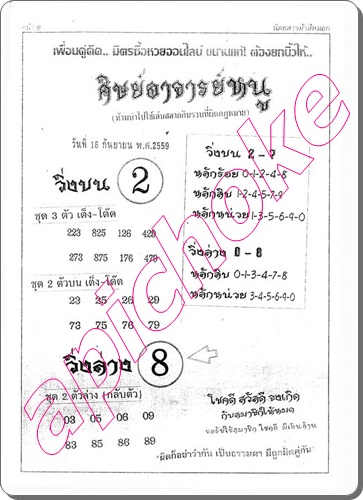 หน้า 8
นิตยสารม้าสีหมอก
เพื่อนคู่คิด.. มิตรซื้อหวยออนไลน์ ขนานแท้! ต้องยกนิ้วให้..
ศิษย์อาจารย์หนู
(ห้ามนำไปใช้เล่นสลากกินรวบที่ผิดกฎหมาย)
วันที่ 16 กันยายน พ.ศ.2559
วิ่งบน 2
ชุด 3 ตัว เต็ง-โต๊ด
223 825 126 429
273 875 176 479
ชุด 2 ตัวบน เต็ง-โต๊ด
23 25 26 29
73 75 76 79
วิ่งบน 2-7
หลักร้อย 0-1-2-4-8
หลักสิบ 1-2-4-5-7-9
หลักหน่วย 1-3-5-6-9-0
วิ่งล่าง 0-8
หลักสิบ 0-1-3-4-7-8
หลักหน่วย 3-4-5-6-9-0
วิ่งล่าง 8
ชุด 2 ตัวล่าง (กลับตัว)
03 05 06 09
83 85 86 89
โชคดี สวัสดี จงเกิด
กับสมาชิกใช้หมด
ขอให้ใช้สมาชิก โชคดี มีเงินล้าน
"ผิดก็อย่าว่ากัน เป็นธรรมดา มีถูกผิดคู่กัน"
apichoke